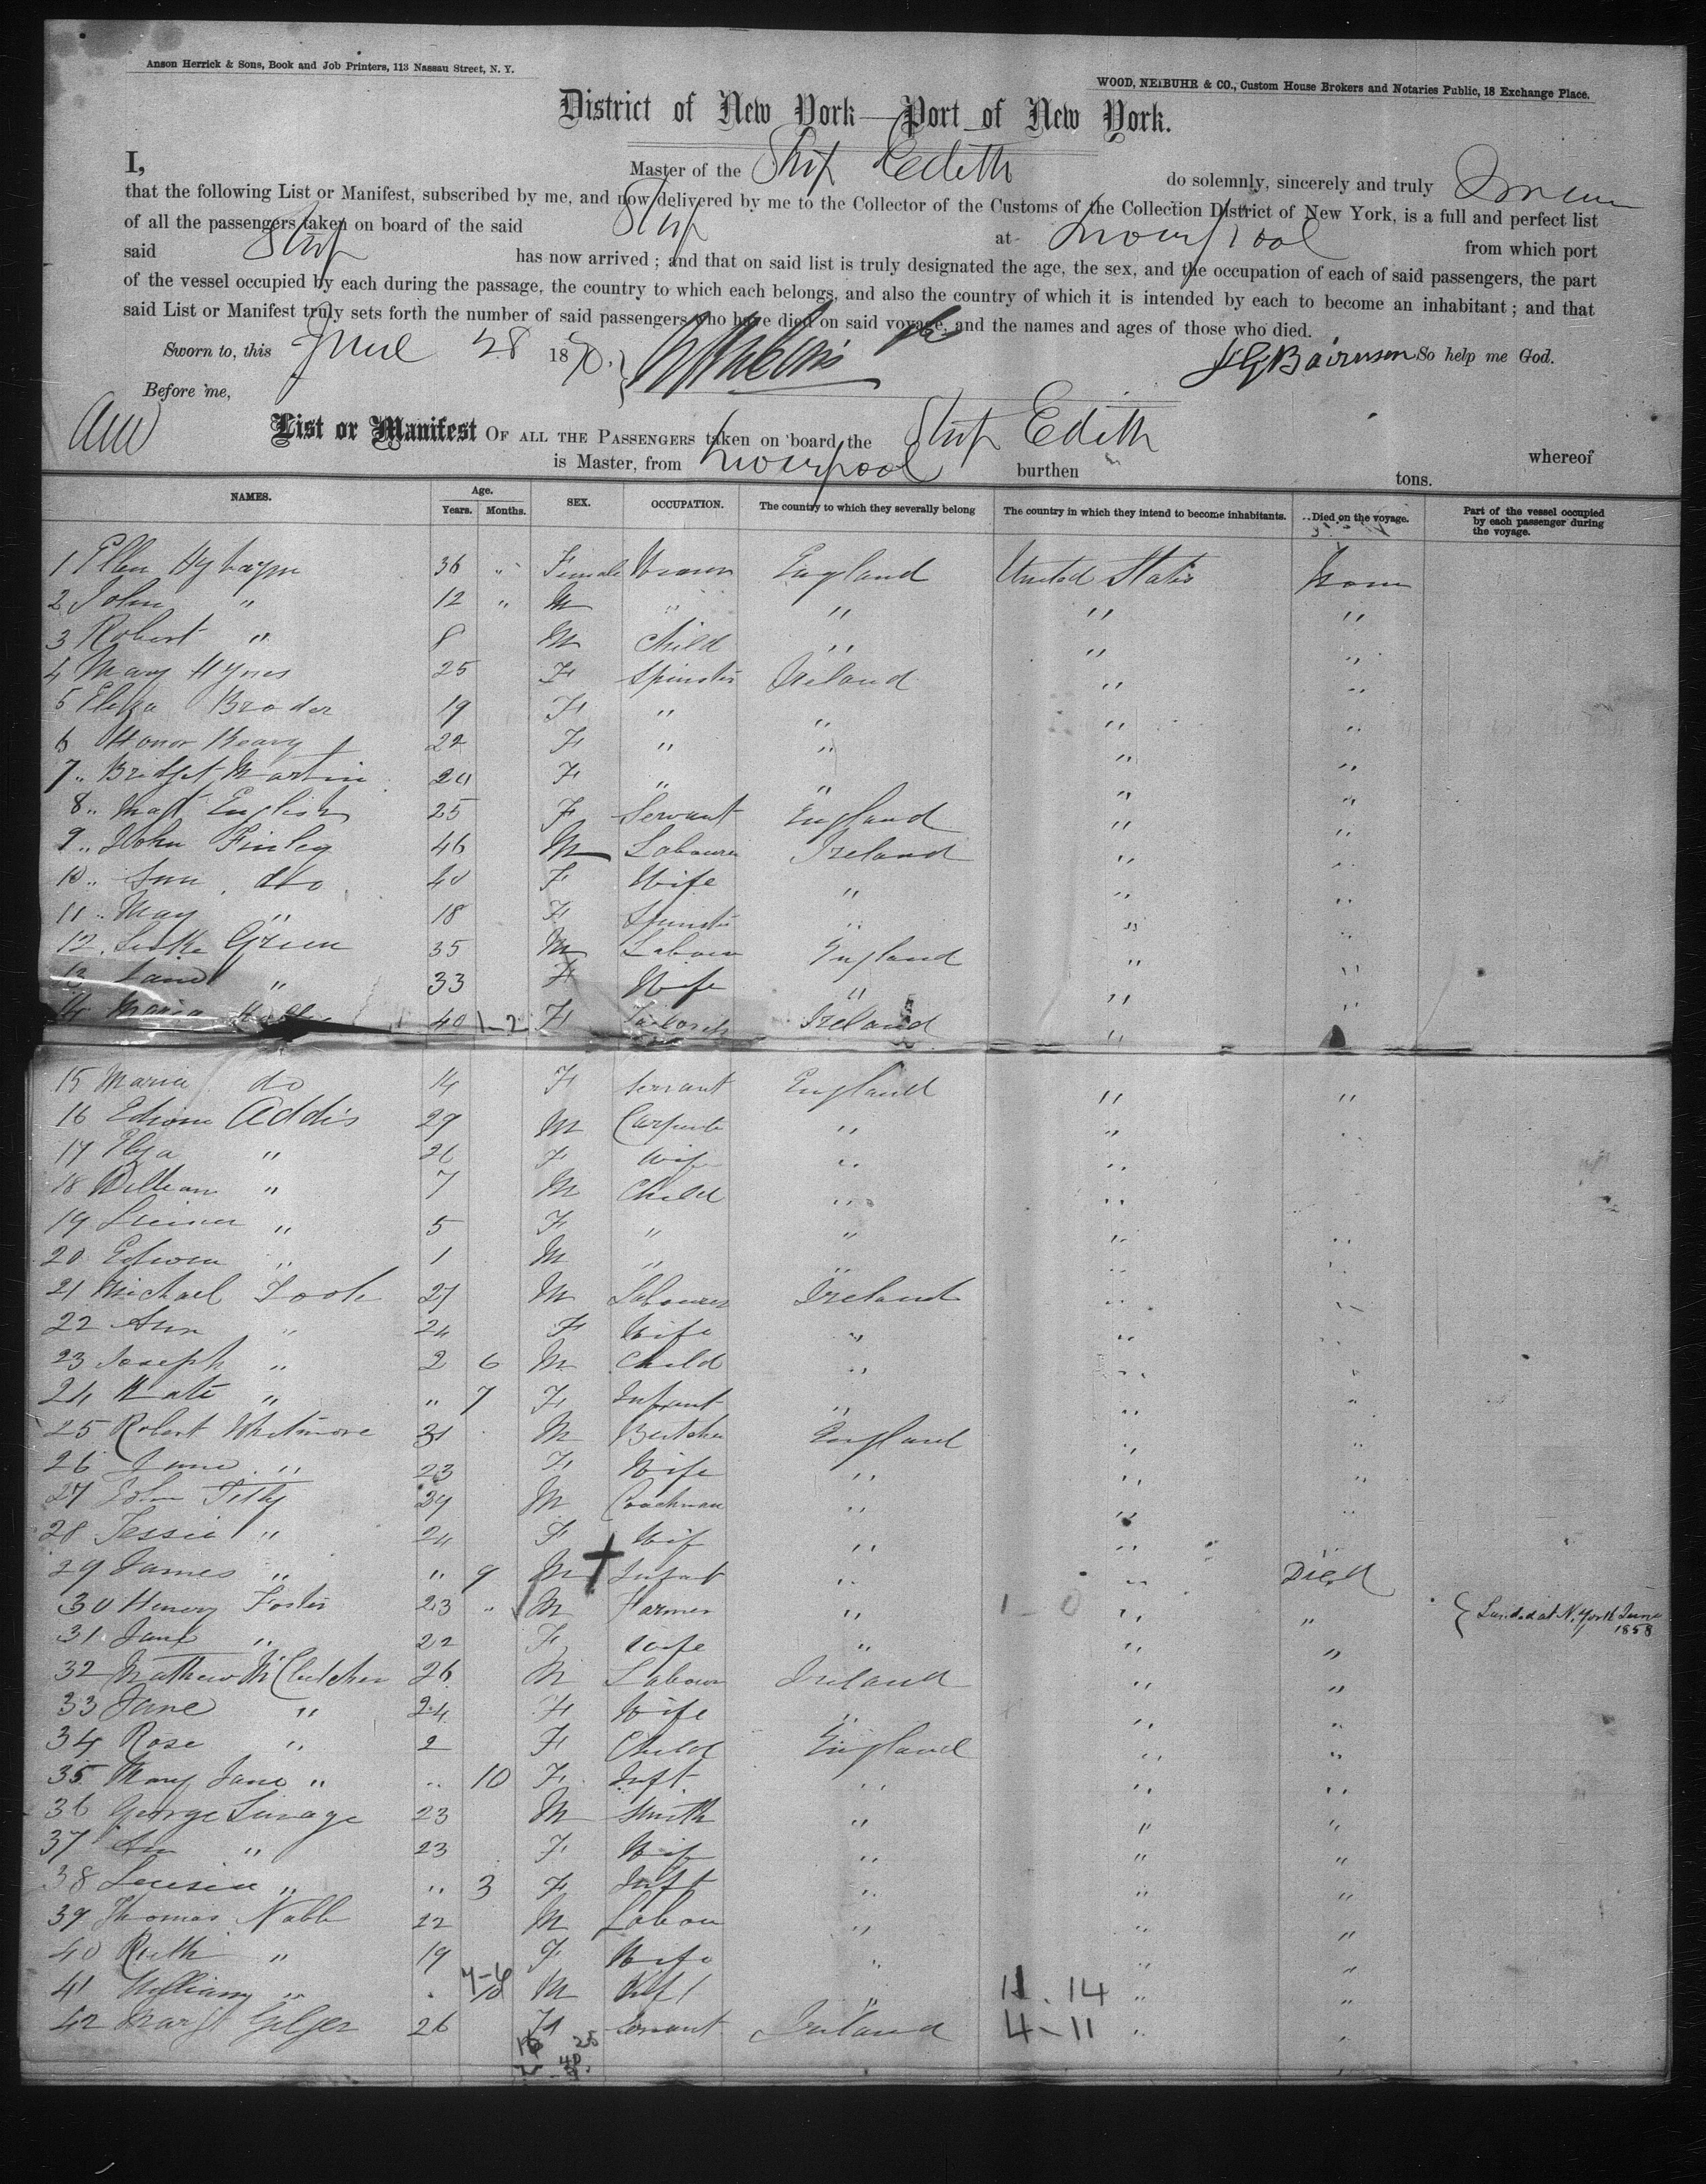 Anson Herrick & Sons, Book and Job Printers, 113 Nassau Street, N. Y.
WOOD, NEIBUHR & CO., Custom House Brokers and Notaries Public, 18 Exchange Place.
District of New York—Port of New York.
I, Master of the Ship Edith do solemnly, sincerely and truly
that the following List or Manifest, subscribed by me, and now delivered by me to the Collector of the Customs of the Collection District of New York, is a full and perfect list
of all the passengers taken on board of the said Ship at Liverpool from which port
said Ship has now arrived; and that on said list is truly designated the age, the sex, and the occupation of each of said passengers, the part
of the vessel occupied by each during the passage, the country to which each belongs, and also the country of which it is intended by each to become an inhabitant; and that
said List or Manifest truly sets forth the number of said passengers who have died on said voyage, and the names and ages of those who died.
Sworn to, this June 28 1870. So help me God.
Before me,
List or Manifest OF ALL THE PASSENGERS taken on board the Ship Edith whereof
is Master, from Liverpool burthen tons.
NAMES. Age. Years. Months. SEX. OCCUPATION. The country to which they severally belong The country in which they intend to become inhabitants. Died on the voyage. Part of the vessel occupied by each passenger during the voyage.
1 Ellen 36 " Female England United States
2 John " 12 " M " " " "
3 Robert " 8 M Child " " "
4 Mary Hynes 25 F Spinster Ireland " "
5 Eliza Broder 19 F " " " "
6 Honor 22 F " " " "
7 " Bridget Martin 20 F " " " "
8 " English 25 F Servant England " "
9 " John Finley 46 M Labourer Ireland " "
10 " Ann do 40 F Wife " " "
11 " May " 18 F Spinster " " "
12 Luke Green 35 M Labour England " "
13 " 33 F Wife " " "
14 Maria 40 F Ireland "
15 Maria do 14 F Servant England " "
16 Edwin Addis 29 M Carpenter " " "
17 Elza " 26 F Wife " " "
18 William " 7 M Child " " "
19 " 5 F " " " "
20 Edwin " 1 M " " " "
21 Michael Toole 27 M Labourer Ireland " "
22 Ann " 24 F Wife " " "
23 Joseph " 2 6 M Child " " "
24 Kate " " 7 F Infant " " "
25 Robert Whitmore 31 M Butcher England " "
26 Jane " 23 F Wife " " "
27 John 29 M Coachman " " "
28 Jessie " 24 F Wife " " "
29 James " " 9 M Infant " " Died
30 Henry Foster 23 " M Farmer " " " { Landed at N. York June 1858
31 Jane " 22 F Wife " " "
32 Mathew 26 M Labour Ireland " "
33 Jane " 24 F Wife " " "
34 Rose " 2 F Child England " "
35 Mary Jane " " 10 F Inft " " "
36 George Savage 23 M Smith " " "
37 An " 23 F Wife " " "
38 Louisa " " 3 F Inft " " "
39 Thomas Noble 22 M Labour " " "
40 Ruth " 19 F Wife " " "
41 William " 10 M Inft " 11.14 " "
42 Margt 26 F Servant Ireland 4-11 " "